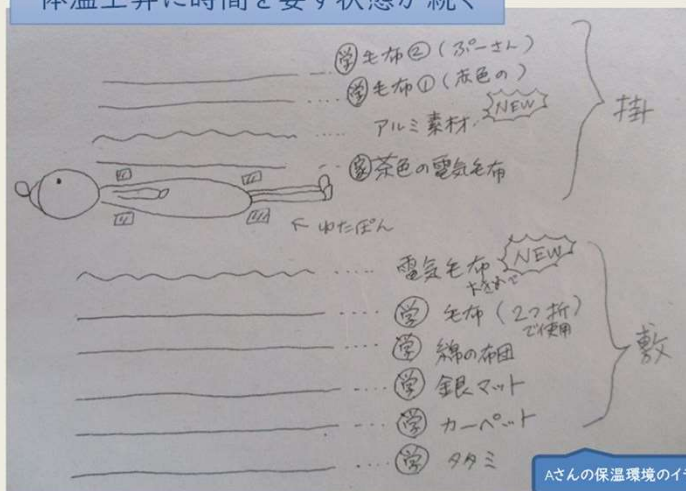 体温上昇に時間を要す状態が続く
学 毛布②(ぷーさん)
学 毛布①(赤色の)
アルミ素材 NEW
家 茶色の電気毛布
掛
← ゆたぽん
電気毛布 NEW
大きめで
学 毛布(2つ折)
で使用
学 綿の布団
学 銀マット
学 カーペット
学 タタミ
敷
Aさんの保温環境のイ